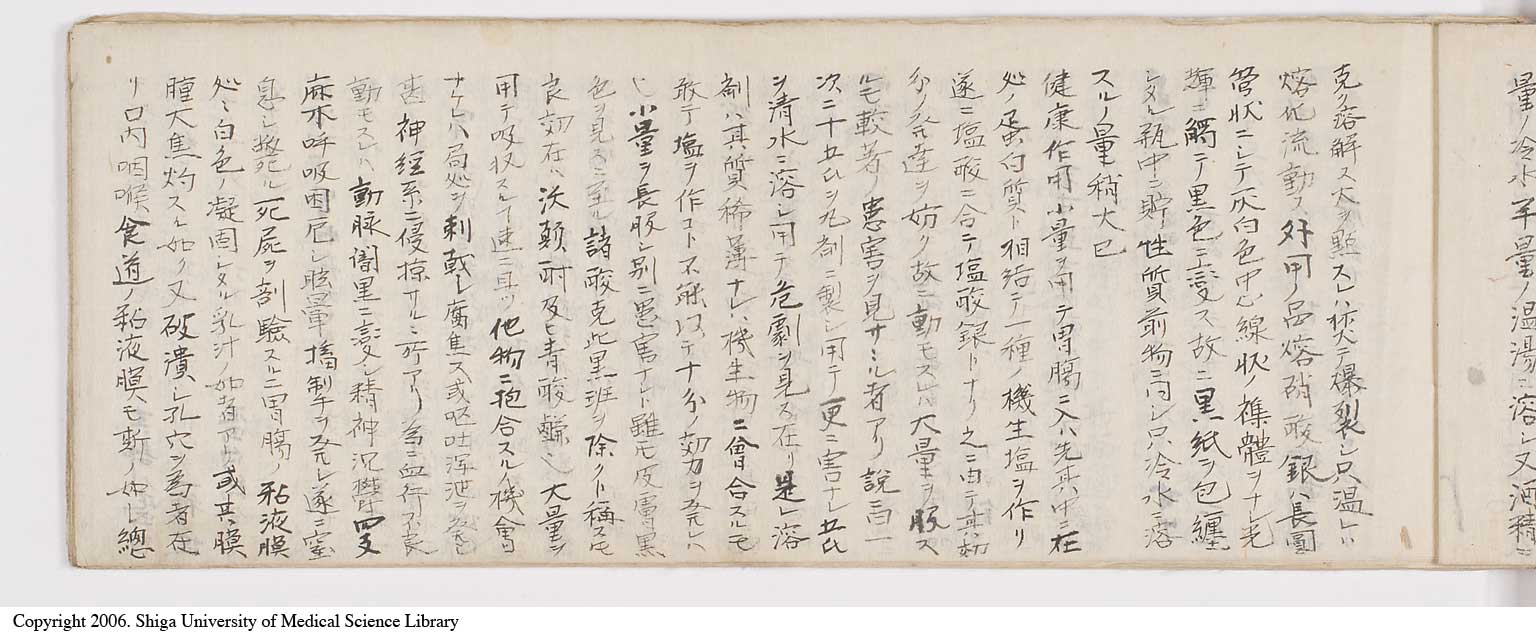 量ノ冷水半量ノ温湯ニ溶レ又酒精ニ
克ク溶解ス火ヲ點スレハ拡テ爆裂シ只温レハ
熔化流動ス外用ノ品熔硝酸銀ハ長圓
管状ニシテ灰白色中心線状ノ襍體ヲナシ光
輝ニ觸テ黒色ニ変ス故ニ黒紙ヲ包纏
シタル瓶中ニ貯性質前物ニ同シ只冷水ニ溶
スルノ量稍大已
健康作用小量ヲ用テ胃腸ニ入ハ先其中ニ在
処ノ蛋白質ト相結テ一種ノ機生塩ヲ作リ
遂ニ塩酸ニ合テ塩酸銀トナリ之ニ由テ其初
分ノ発達ヲ妨ク故ニ動モスレハ大量ヲ服ス
ルモ較著ノ患害ヲ見サル者アリ説ニ曰一
次ニ十五氏ヲ丸剤ニ製シ用テ更ニ害ナシ五氏
ヲ清水ニ溶シ用テ危劇ヲ見ス在リ是レ溶
剤ハ其質稀薄ナレハ機生物ニ會合スルモ
敢テ塩ヲ作コト不能以テナ分ノ効力ヲ発レハ
シ小量ヲ長服シ別ニ悪害ナシト雖モ皮膚黒
色ヲ見ルニ至ル諸酸克此黒班ヲ除クト稱スモ
良効在ハ沃顛酎及ヒ青酸鹸シ大量ヲ
用テ吸収スルコ速ニ且ツ他物ニ抱合スル機會
ナケレハ局処ヲ刺戟シ腐焦ス或嘔吐渾泄ヲ発シ
甚神経系ニ侵掠サルニ所アリ為ニ血行不良
動モスレハ動脉闇黒ニ変シ精神沉鬱四支
麻木呼吸困厄シ眩暈搐掣ヲ発シ遂ニ窒
息シ斃死ル死屍ヲ剖驗スルニ胃腸ノ粘液膜
処々白色ノ凝固シタル乳汁ノ如者アリ或其膜
腫大焦灼スル如ク又破潰シ孔穴ヲ為者在
リ口内咽喉食道ノ粘液膜モ斯ノ如シ總